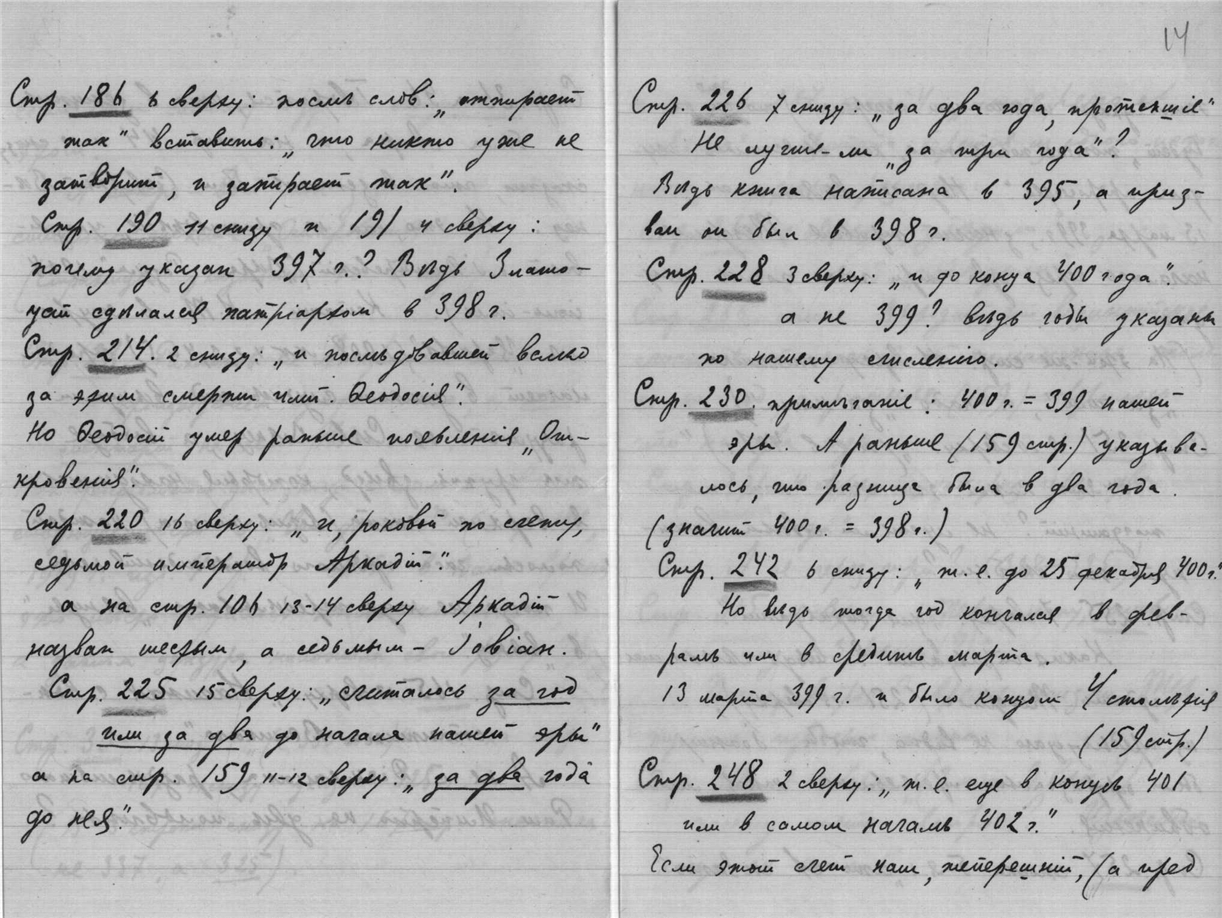 Стр. 186 6 сверху: послѣ слов: „отпирает
так“ вставить: „что никто уже не
затворит, и запирает так“.
Стр. 190 11 снизу и 191 4 сверху:
почему указан 397 г.? Вѣдь Злато-
уст сдѣлался патріархом в 398 г.
Стр. 214. 2 снизу: „и послѣдовавшей вслѣд
за этим смерти имп. Ѳеодосія“.
Но Ѳеодосій умер раньше появленія „От-
кровенія“.
Стр. 220 16 сверху: „и, роковой по счету,
седьмой император Аркадій“.
а на стр. 106 13-14 сверху Аркадій
назван шестым, а седьмым – Іовіан.
Стр. 225 15 сверху: „считалось за год
или за два до начала нашей эры“
а на стр. 159 11-12 сверху: „за два года
до нея“.
14
Стр. 226 7 снизу: „за два года, протекшіе“
Не лучше-ли „за три года“?
Вѣдь книга написана в 395, а приз-
ван он был в 398 г.
Стр. 228 3 сверху: „и до конца 400 года“.
а не 399? вѣдь годы указаны
по нашему счисленію.
Стр. 230. примѣчаніе: 400 г. = 399 нашей
эры. А раньше (159 стр.) указыва-
лось, что разница была в два года.
(значит 400 г. = 398 г.)
Стр. 242 6 снизу: „т.е. до 25 декабря 400 г.“
Но вѣдь тогда год кончался в фев-
ралѣ или в срединѣ марта.
13 марта 399 г. и было концом 4 столѣтія
(159 стр.)
Стр. 248 2 сверху: „т.е. еще в концѣ 401
или в самом началѣ 402 г.“
Если этот счет наш, теперешній, (а пред